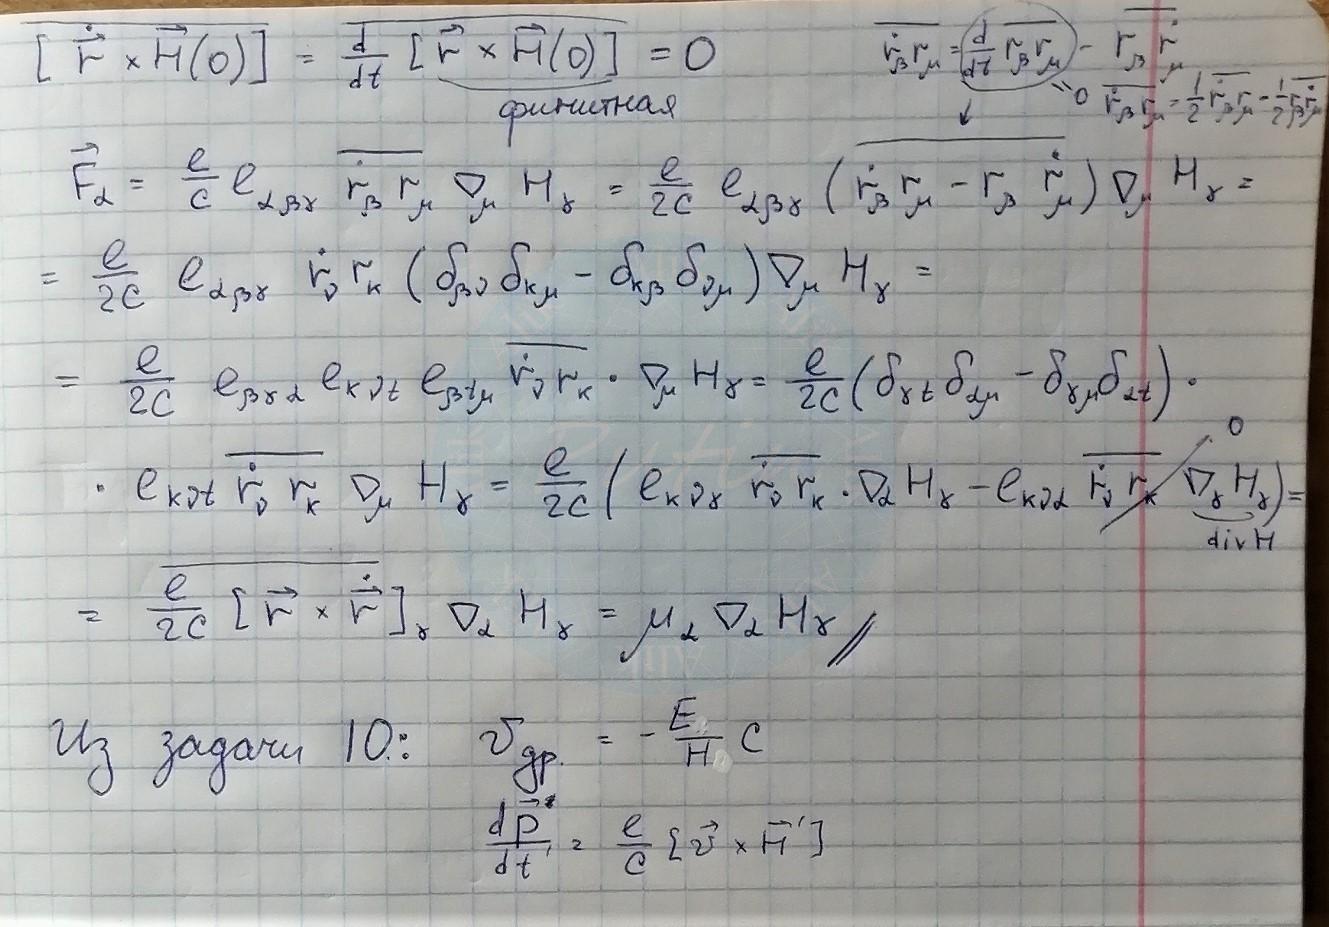 [ ṙ⃗ × H⃗(0)] = d/dt [ r⃗ × H⃗(0)] = 0
финитная
ṙ_β r_μ = d/dt r_β r_μ − r_β ṙ_μ
= 0 ṙ_β r_μ = 1/2 ṙ_β r_μ − 1/2 r_β ṙ_μ
F⃗_α = e/c e_αβγ ṙ_β r_μ ∇_μ H_γ = e/2c e_αβγ ( ṙ_β r_μ − r_β ṙ_μ ) ∇_μ H_γ =
= e/2c e_αβγ ṙ_ν r_κ ( δ_βν δ_κμ − δ_κβ δ_νμ ) ∇_μ H_γ =
= e/2c e_βγα e_κνt e_βtμ ṙ_ν r_κ · ∇_μ H_γ = e/2c ( δ_γt δ_αμ − δ_γμ δ_αt ) ·
· e_κνt ṙ_ν r_κ ∇_μ H_γ = e/2c ( e_κνγ ṙ_ν r_κ · ∇_α H_γ − e_κνα ṙ_ν r_κ ∇_γ H_γ ) =
0
div H
= e/2c [ r⃗ × ṙ⃗ ]_γ ∇_α H_γ = μ_α ∇_α H_γ //
Из задачи 10.: v_др. = − E/H c
dp⃗'/dt' = e/c [ v⃗ × H⃗' ]